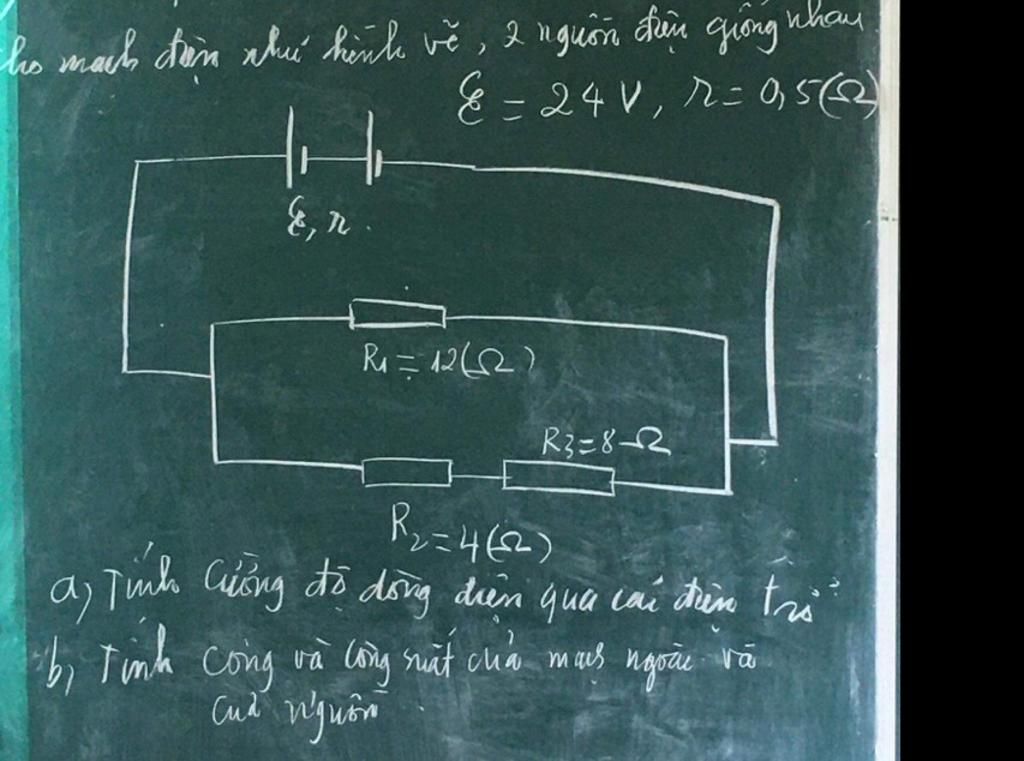 cho mạch điện như hình vẽ, 2 nguồn điện giống nhau
ℰ = 24V, r = 0,5(Ω)
ℰ, r.
R1 = 12(Ω)
R3 = 8 Ω
R2 = 4(Ω)
a, Tính cường độ dòng điện qua các điện trở
b, Tính công và công suất của mạch ngoài và
của nguồn.